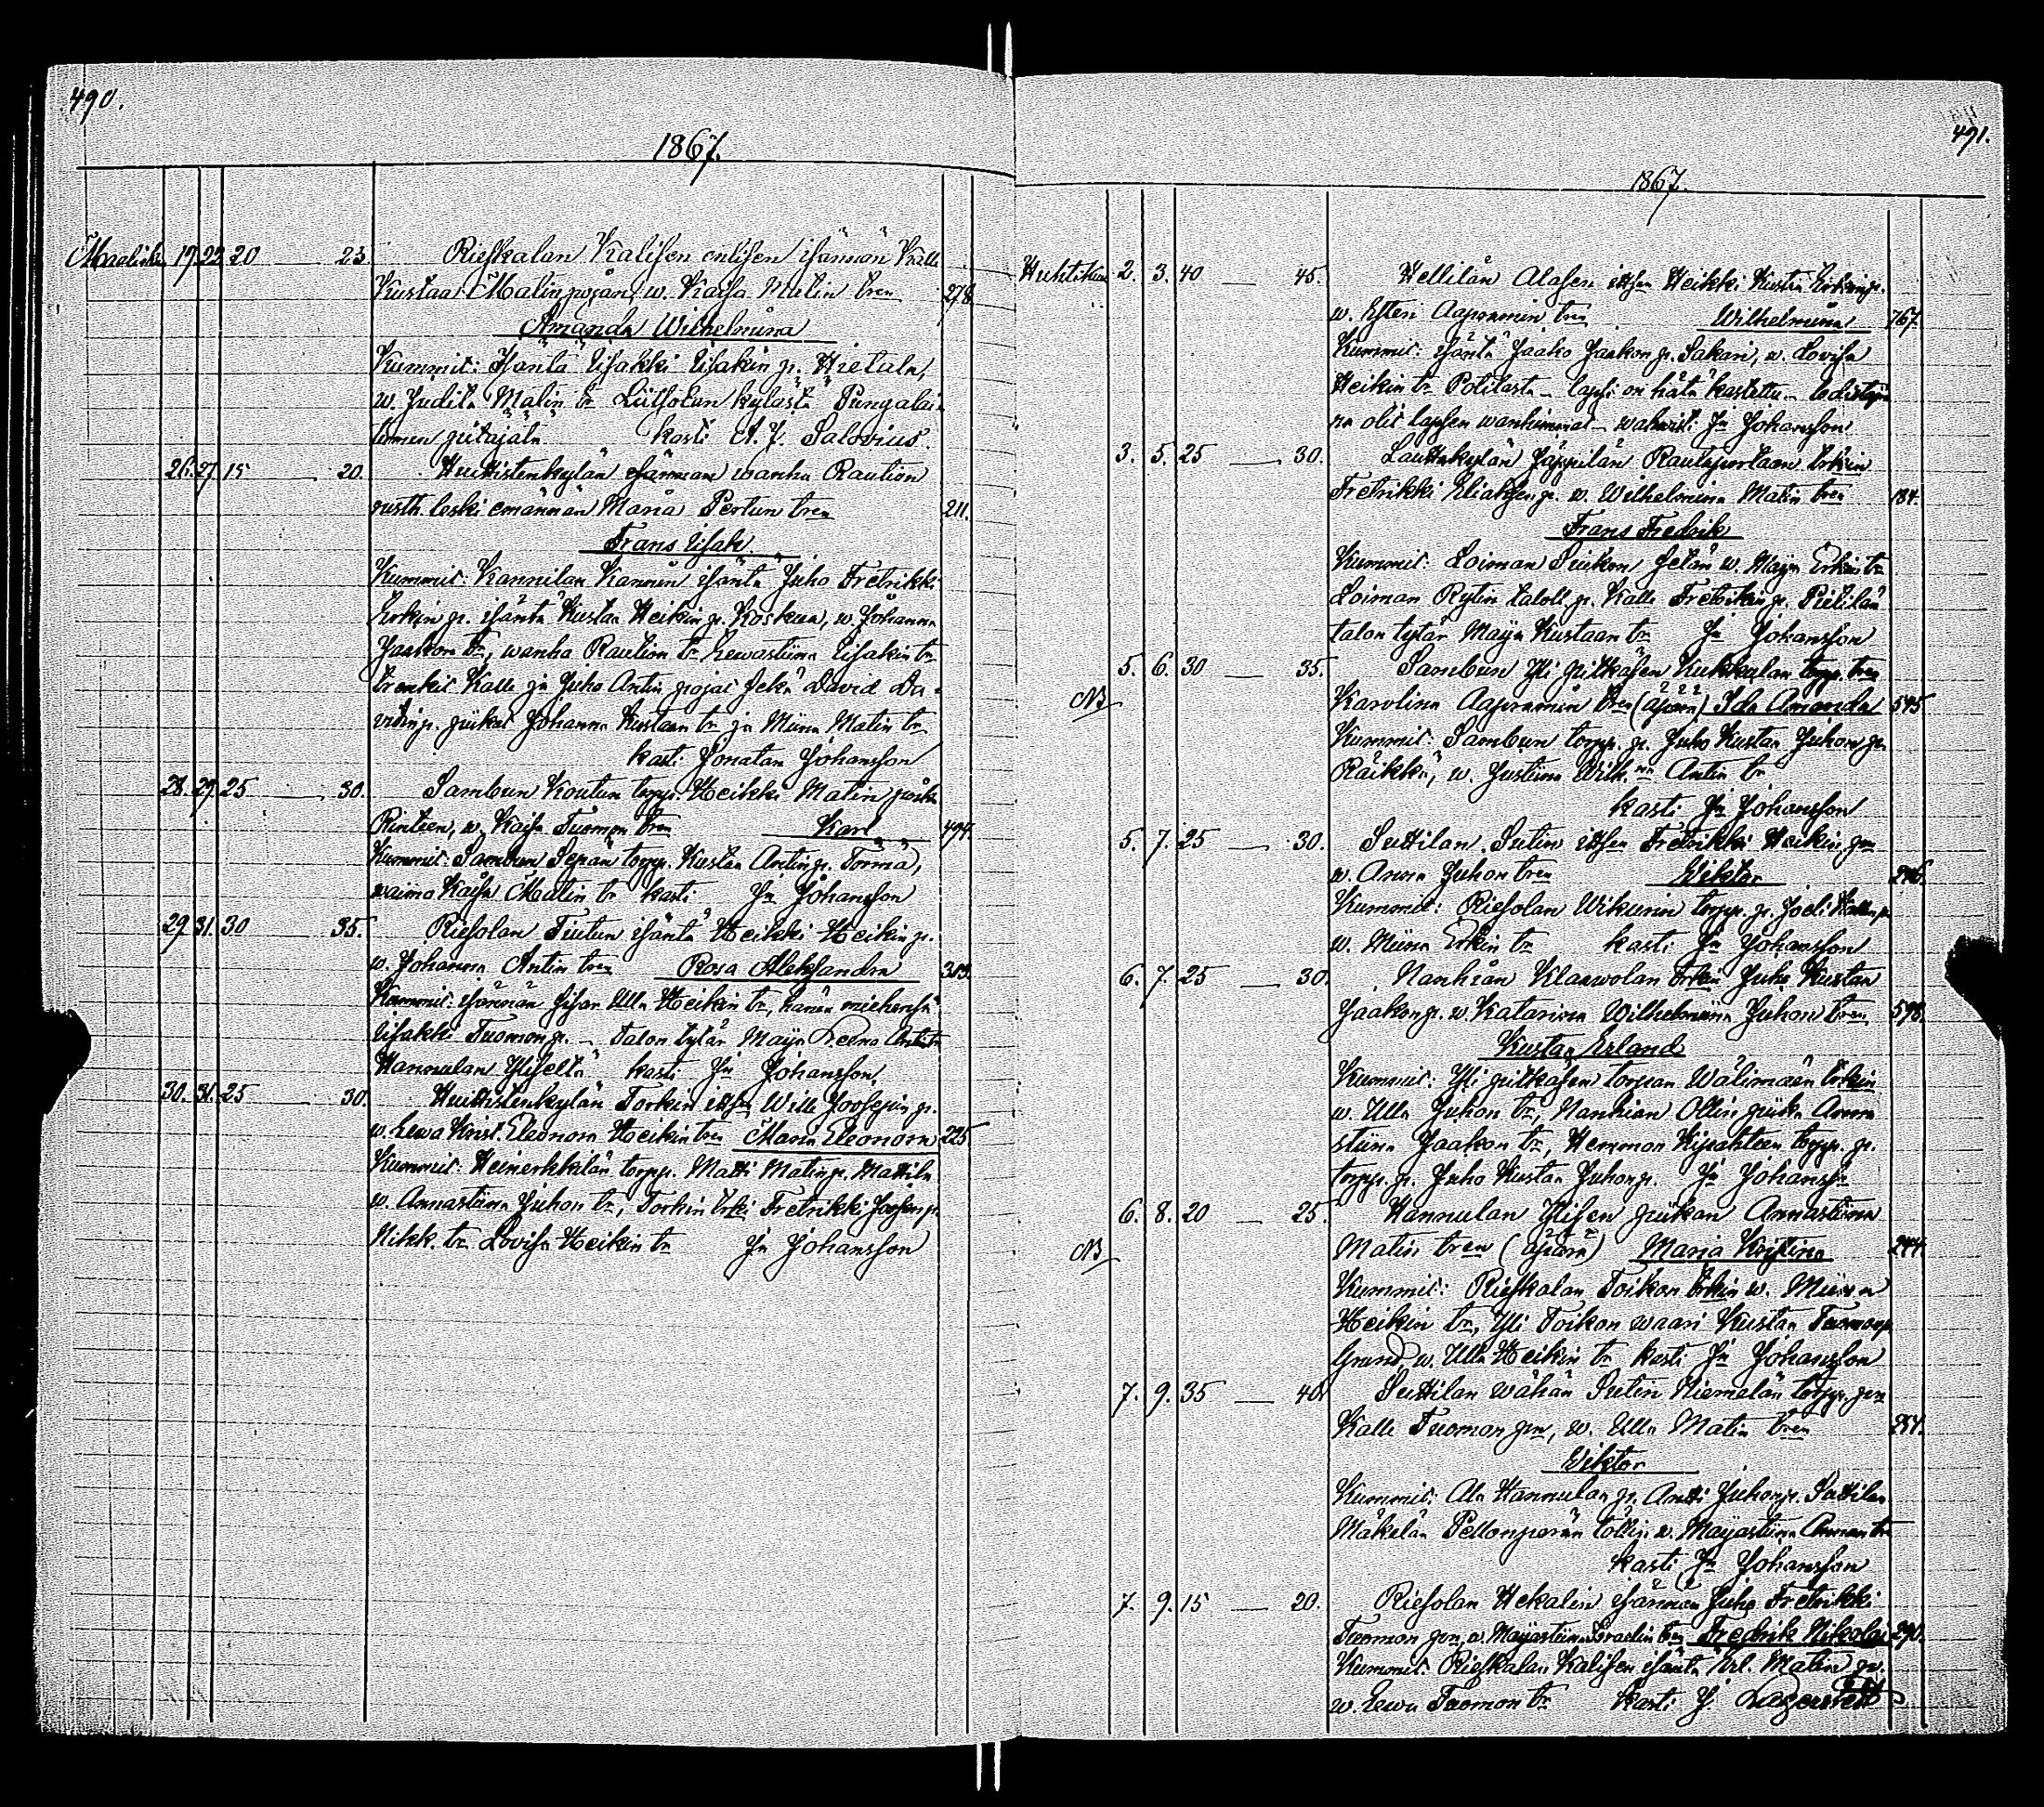 490.
1867.
Maalisk. 19. 22. 20 — 25. Rieskalan Kalisen entisen isännän Kalle
Kustaa Matin pojan, w. Kaisa Matin tren 278.
Amanda Wilhelmiina
Kummit: Isäntä Iisakki Iisakin p. Hietala,
w. Judita Matin tr kylästä Pungalai-
tumen pitäjätä kasti A. J. Salovius.
26. 27. 15 — 20. Huittistenkylän isännän wanha Raution
rusth. leski emännän Maria Pertun tren 211.
Frans Isak.
Kummit: Kannilan isäntä Juho Fretrikki
Erkin p. isäntä Kustaa Heikin p. Koskua, w. Johanna
Jaakon tr, wanha Raution tr Eewastiina Iisakin tr
trenkit Kalle ja Juho Antin pojat sekä David Da-
vidin p. piikat Johanna Kustaan tr ja Miina Matin tr
kasti Jonatan Johansson
28. 29. 25 — 30. Sambun Koutun torpp. Heikki Matin
w. Kaisa Tuomon tren Karl 494.
Kummit: Sambun Sepän torpp. Kustaa Antin p. Törmä,
waimo Kaisa Matin tr kasti Jn Johansson
29. 31. 30 — 35. Riesolan isäntä Heikki Heikin p.
w. Johanna Antin tren Rosa Aleksandra 303.
Kummit: isännän sisar Ulla Heikin tr, hänen miehensä
Iisakki Tuomon p. – talon tytär Maija Leena
Hannulan Yliseltä kasti Jn Johansson.
30. 31. 25 — 30. Huittistenkylän Torkin Wille Joosepin p.
w. Eewa Krist. Eleonora Heikin tren Maria Eleonora 225
Kummit: Heinerkkilän torpp. Matti Matin p. Mattila
w. Annastiina Juhon tr, Torkin Fretrikki Joosepin p.
Nikk. tr. Lovisa Heikin tr Jn Johansson
491.
1867.
Huhtikuu 2. 3. 40 — 45. Hellilän Alasen Heikki Kustaa
w. Esteri Aapramin tren Wilhelmiina 767.
Kummit: isäntä Jaako Jaakon p. Sakari, w. Lovisa
Heikin tr – lapsi on hätä kastettu –
na olit lapsen wanhimmat – wahwisti Jn Johansson
3. 5. 25 — 30. Lauttakylän Jäppilän
Fretrikki w. Wilhelmiina Matin tren 184.
Frans Fredrik
Kummit: Loiman w. Maija Erkin tr
Loiman Rytin p. Kalle Fretrikin p.
talon tytär Maija Kustaan tr Jn Johansson
5. 6. 30 — 35. Sambun Yli pitkäsen torpp. tren
NB Karolina Aapramin tren (äpärä) Ida Amanda 545
Kummit: Sambun torpp. p. Juho Kustaa Juhon p.
Räikkä, w. Justiina Antin tr
kasti Jn Johansson
5. 7. 25 — 30. Suttilan Sutin Fretrikki Heikin pn
w. Anna Juhon tren Wiktor 246.
Kummit: Riesolan torpp. p.
w. Miina Erkin tr kasti Jn Johansson
6. 7. 25 — 30. Nanhian Juho Kustaa
Jaakon p. w. Katariina Wilhelmiina Juhon tren 598.
Kustaa Erland
Kummit: Yli pitkäsen torpan Wälimäen
w. Ulla Juhon tr, Nanhian Ollin piika Anna
stiina Jaakon tr, Hemmon torpp. p.
torpp. p. Juho Kustaa Juhon p. Jn Johansson
6. 8. 20 — 25. Hannulan Ylisen piikan Annastiina
NB Matin tren (äpärä) Maria Kristina 244.
Kummit: Rieskalan Toikan w. Miina
Heikin tr, Yli Toikon waari Kustaa Tuomon p.
Grund, w. Ulla Heikin tr kasti Jn Johansson
7. 9. 35 — 40. Suttilan wähän Sutin Niemelän torpp. pn
Kalle Tuomon pn, w. Ulla Matin tren 254.
Wiktor
Kummit: Ala Hannulan p. Antti Juhon p. Suttilan
Mäkelän Pellonperän w. Maijastiina
kasti Jn Johansson
7. 9. 15 — 20. Riesolan Hekalin isännän Juho Fretrikki
Tuomon pn, w. Maijastiina Israelin tren Fredrik Nikolai 290.
Kummit: Rieskalan Kalisen isäntä Matin p.
w. Eewa Tuomon tr kasti J.